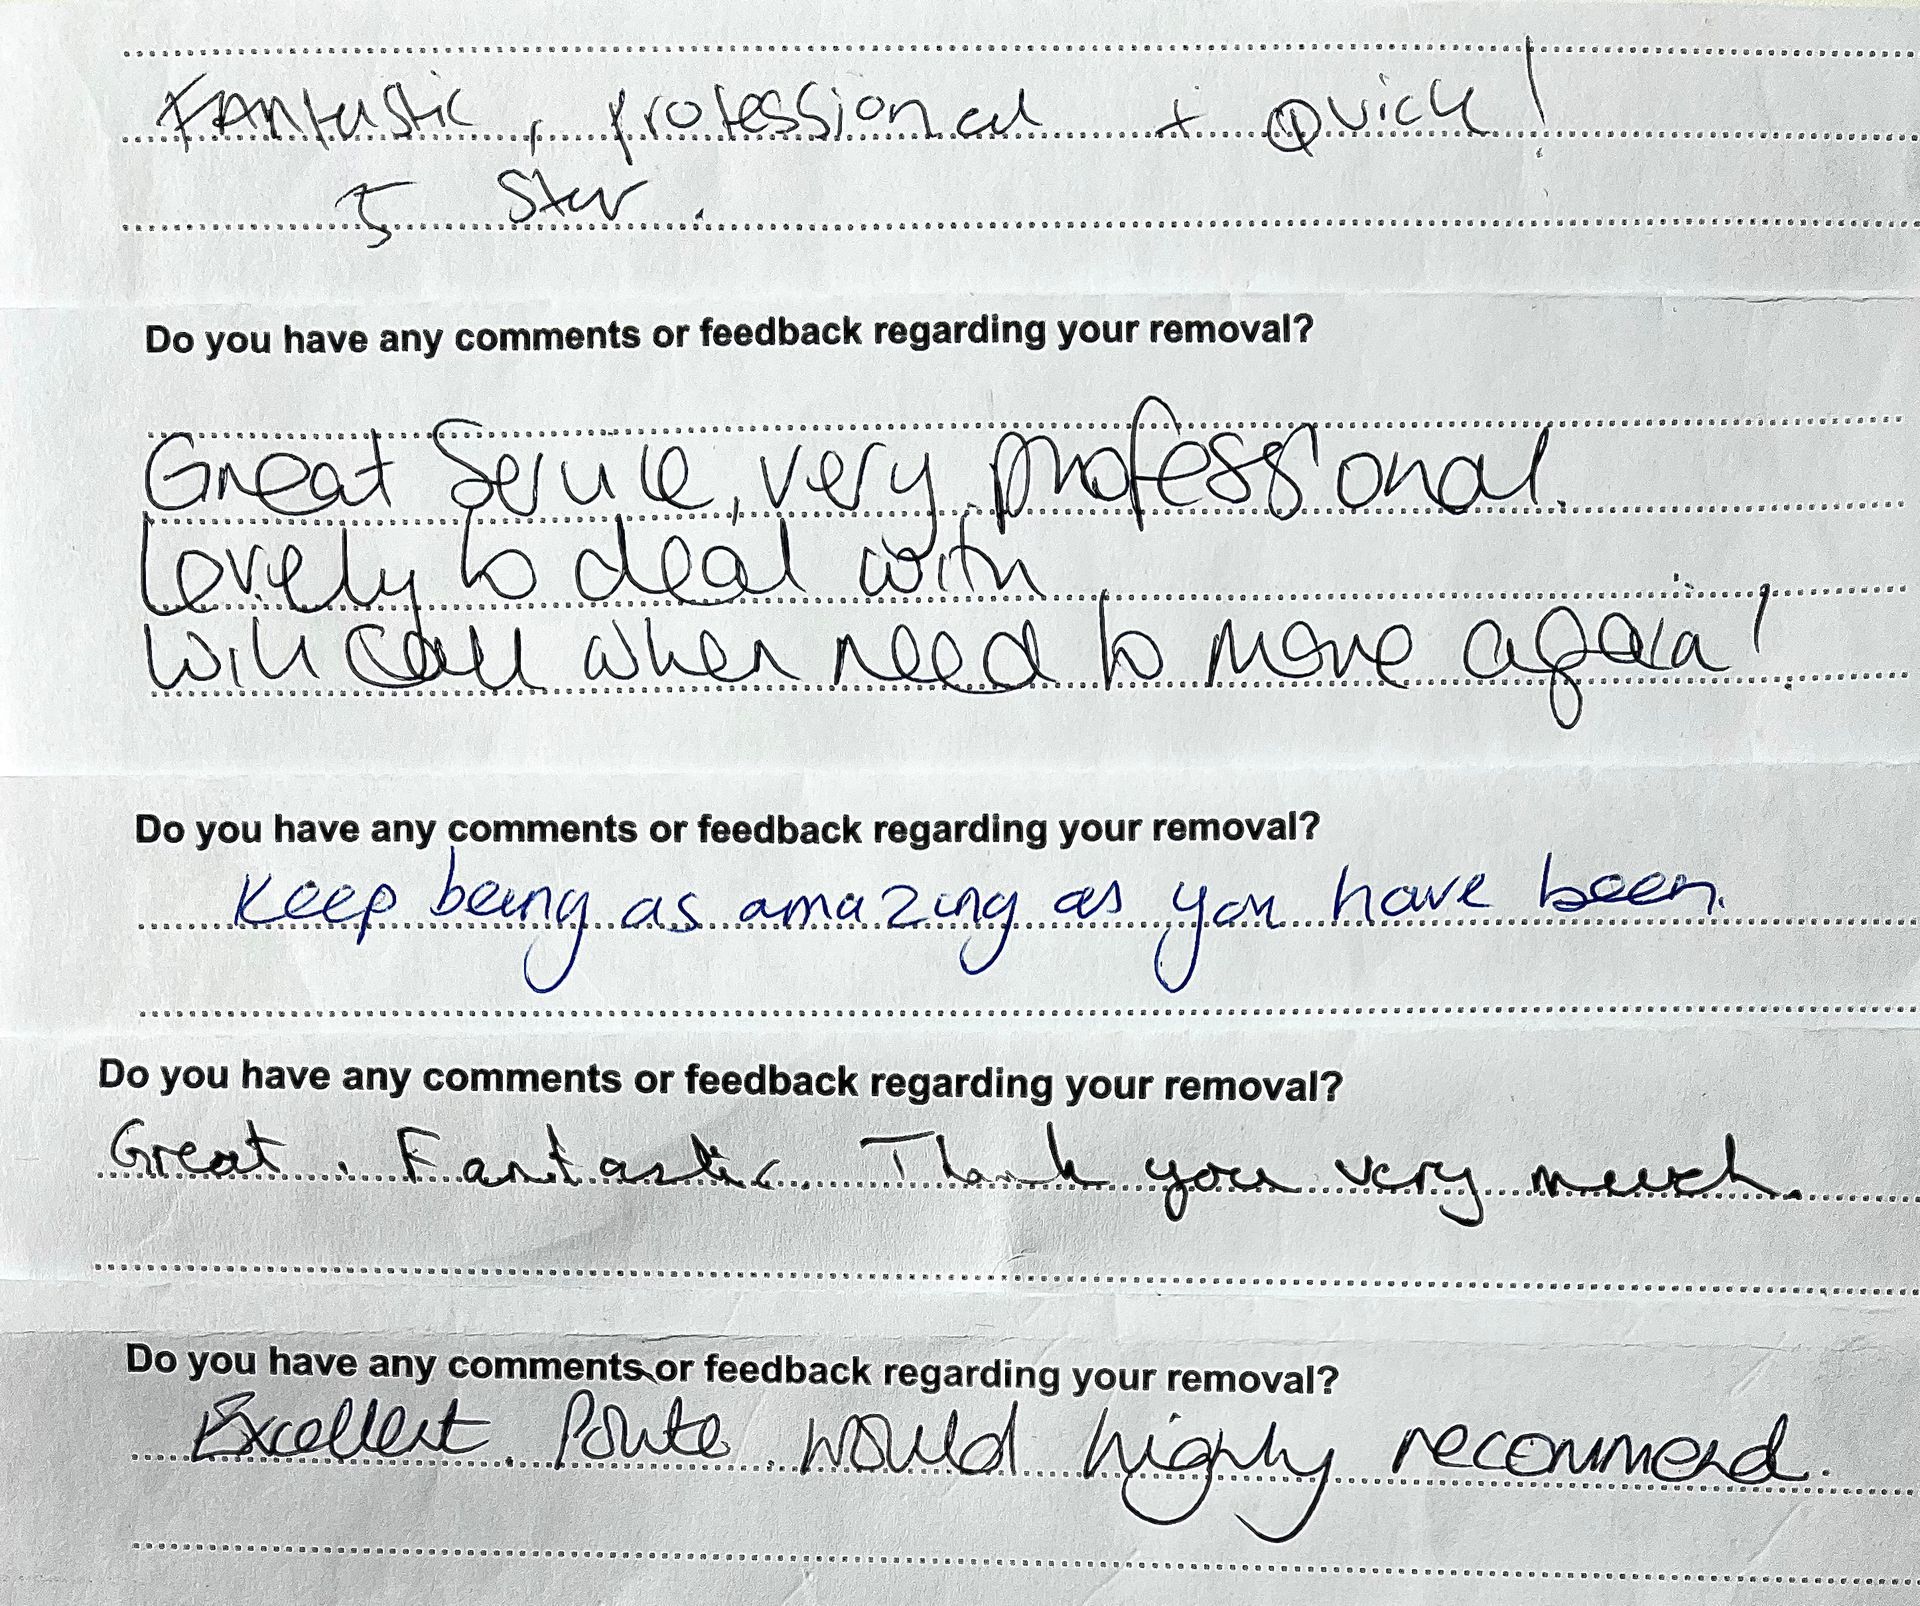 Fantastic, professional + Quick!
5 Star.
Do you have any comments or feedback regarding your removal?
Great Service, very professional.
Lovely to deal with
Will call when need to move again!
Do you have any comments or feedback regarding your removal?
Keep being as amazing as you have been.
Do you have any comments or feedback regarding your removal?
Great. Fantastic. Thank you very much.
Do you have any comments or feedback regarding your removal?
Excellent. Polite. Would highly recommend.